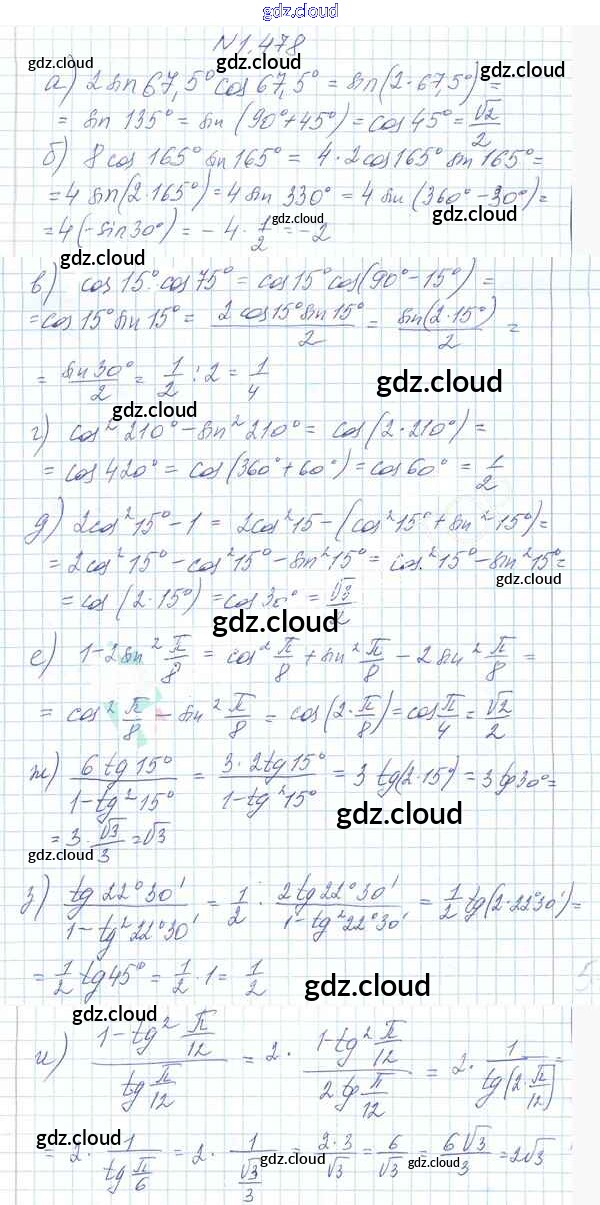 gdz.cloud
N1.478
gdz.cloud gdz.cloud
а) 2 sin 67,5° cos 67,5° = sin(2·67,5°) =
gdz.cloud
= sin 135° = sin (90°+45°) = cos 45° = √2/2
gdz.cloud
б) 8 cos 165° sin 165° = 4·2cos165° sin 165° =
= 4 sin(2·165°) = 4 sin 330° = 4 sin (360° - 30°) =
= 4(-sin30°) = -4·1/2 = -2
gdz.cloud gdz.cloud
в) cos 15°·cos 75° = cos 15° cos(90° - 15°) =
= cos 15° sin 15° = 2 cos15° sin 15°/2 = sin(2·15°)/2 =
= sin 30°/2 = 1/2 : 2 = 1/4
gdz.cloud
gdz.cloud
г) cos² 210° - sin² 210° = cos (2·210°) =
= cos 420° = cos (360° + 60°) = cos 60° = 1/2
д) 2cos² 15° - 1 = 2cos² 15 - (cos² 15° + sin² 15°) =
= 2cos² 15° - cos² 15° - sin² 15° = cos² 15° - sin² 15° =
gdz.cloud
= cos (2·15°) = cos 30° = √3/2
gdz.cloud
е) 1 - 2 sin² π/8 = cos² π/8 + sin² π/8 - 2 sin² π/8 =
= cos² π/8 - sin² π/8 = cos (2·π/8) = cos π/4 = √2/2
ж) 6 tg 15°/1 - tg² 15° = 3·2tg 15°/1 - tg² 15° = 3 tg(2·15°) = 3 tg 30° =
gdz.cloud
= 3·√3/3 = √3
gdz.cloud
gdz.cloud
з) tg 22°30'/1 - tg² 22°30' = 1/2 · 2tg 22°30'/1 - tg² 22°30' = 1/2 tg(2·22°30') =
= 1/2 tg 45° = 1/2·1 = 1/2
gdz.cloud
и) 1 - tg² π/12/tg π/12 = 2· 1 - tg² π/12/2 tg π/12 = 2· 1/tg(2·π/12) =
gdz.cloud gdz.cloud
= 2· 1/tg π/6 = 2· 1/√3/3 = 2·3/√3 = 6/√3 = 6√3/3 = 2√3
gdz.cloud gdz.cloud